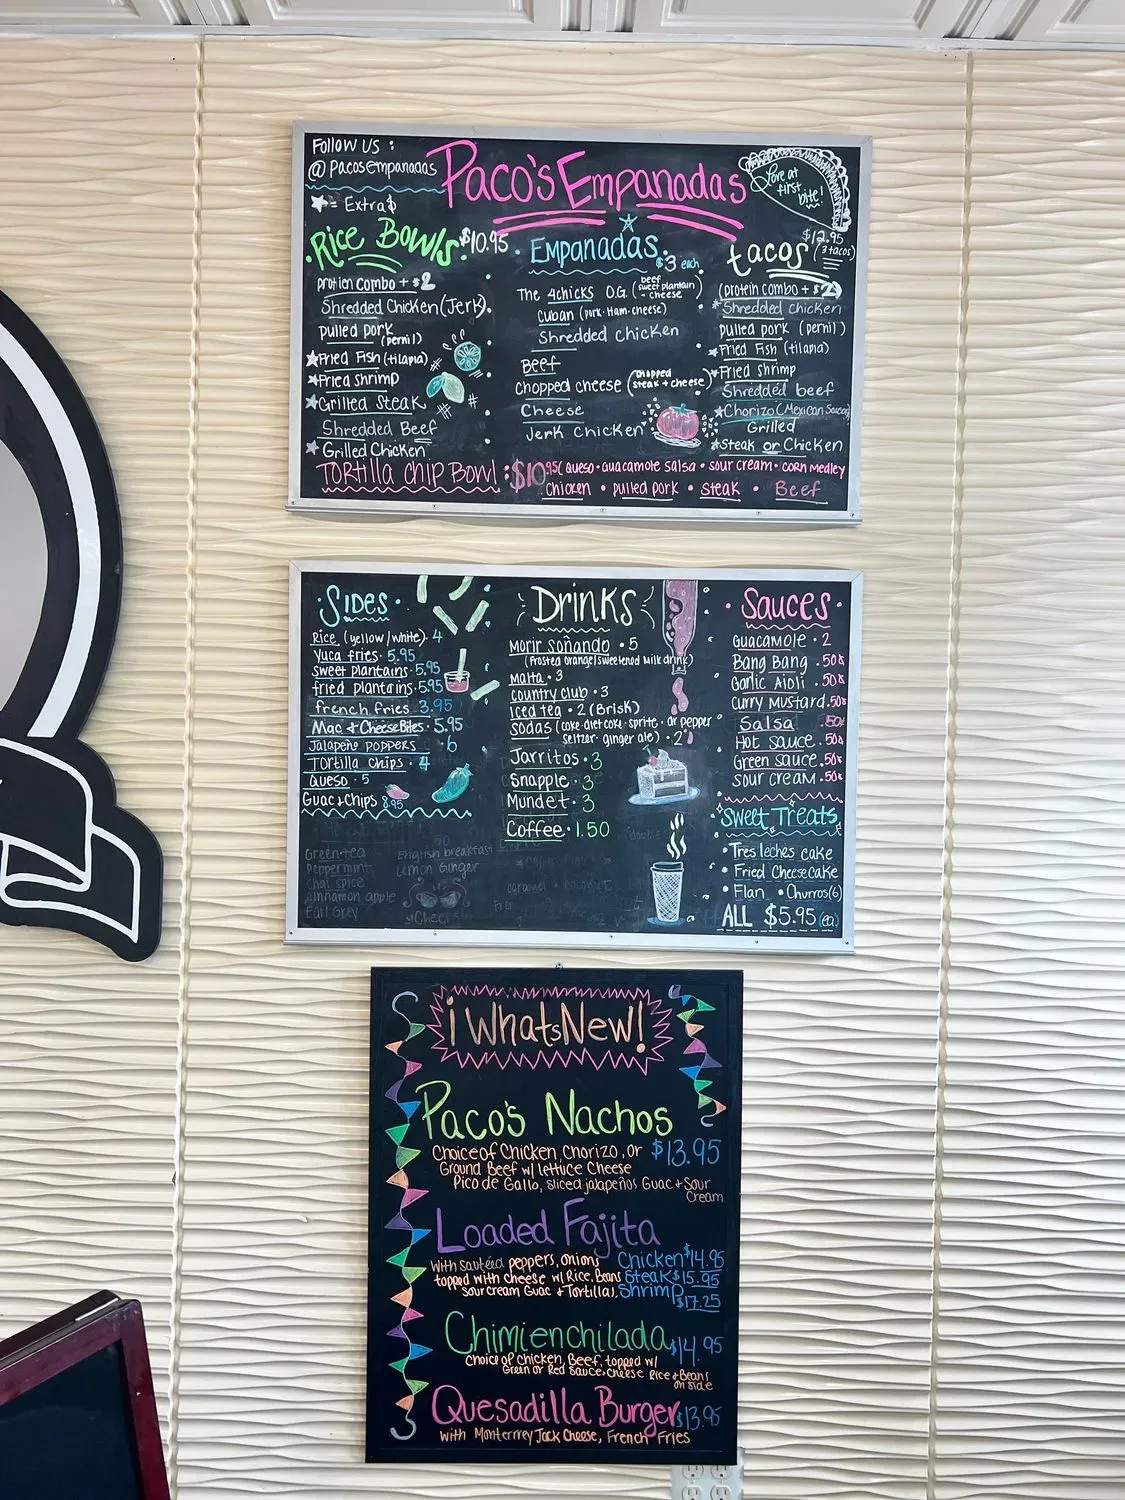 Follow Us :
@ Pacosempanadas
Paco's Empanadas
Love at
first
bite!
★ = Extra $
Rice Bowls $10.95
protien combo + $2
Shredded Chicken (Jerk)
pulled pork
(pernil)
★Fried Fish (tilapia)
★Fried shrimp
★Grilled Steak
Shredded Beef
★Grilled Chicken
Empanadas
$3 each
The 4chicks O.G. (beef
sweet plantain
- cheese)
Cuban (pork. Ham. cheese)
Shredded chicken
Beef
chopped cheese (chopped
steak + cheese)
Cheese
Jerk Chicken
tacos
$12.95
(3 tacos)
(protein combo + $2)
★Shredded chicken
pulled pork (pernil)
★Fried Fish (tilapia)
★Fried shrimp
Shredded beef
★Chorizo (Mexican Sausage)
Grilled
★Steak or Chicken
Tortilla Chip Bowl : $10.95 (queso • guacamole salsa • sour cream • corn medley
chicken • pulled pork • steak • Beef
Sides
Rice (yellow/white) • 4
Yuca fries • 5.95
sweet plantains • 5.95
fried plantains • 5.95
french fries 3.95
Mac & Cheese Bites • 5.95
Jalapeño poppers • 6
Tortilla chips • 4
Queso • 5
Guac & Chips 8.95
Green tea
Peppermint
chai spice
cinnamon apple
Earl Grey
English breakfast
Lemon Ginger
Drinks
Morir soñando • 5
(Frosted orange/sweetened milk drink)
Malta • 3
Country club • 3
Iced tea • 2 (Brisk)
sodas (coke • diet coke • sprite • dr pepper
seltzer • ginger ale) • 2
Jarritos • 3
Snapple • 3
Mundet • 3
Coffee • 1.50
caramel
Sauces
Guacamole • 2
Bang Bang .50¢
Garlic Aioli .50¢
Curry Mustard .50¢
Salsa .50¢
Hot sauce .50¢
Green sauce .50¢
sour cream .50¢
Sweet Treats
• Tres leches cake
• Fried Cheesecake
• Flan • Churros (6)
ALL $5.95 (ea)
¡WhatsNew!
Paco's Nachos
Choice of Chicken, Chorizo, or $13.95
Ground Beef w/ lettuce Cheese
Pico de Gallo, sliced jalapeños Guac + Sour
Cream
Loaded Fajita
with sautéed peppers, onions Chicken $14.95
topped with cheese w/ Rice, Beans Steak $15.95
sour cream Guac + Tortillas, Shrimp
$17.25
Chimienchilada $14.95
Choice of chicken, Beef, topped w/
Green or Red sauce, cheese Rice & Beans
on side
Quesadilla Burger $13.95
with Monterrey Jack Cheese, French Fries